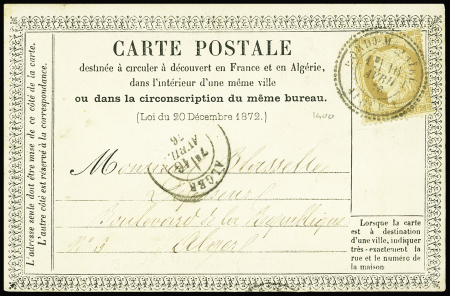 CARTE POSTALE
destinée à circuler à découvert en France et en Algérie,
dans l'intérieur d'une même ville
ou dans la circonscription du même bureau.
(Loi du 20 Décembre 1872.)
1400
L'adresse seule doit être mise de ce côté de la carte.
L'autre côté est réservé à la correspondance.
ALGER
AVRIL
76
Monsieur
Boulevard de la République
Alger
Lorsque la carte
est à destination
d'une ville, indiquer
très-exactement la
rue et le numéro de
la maison